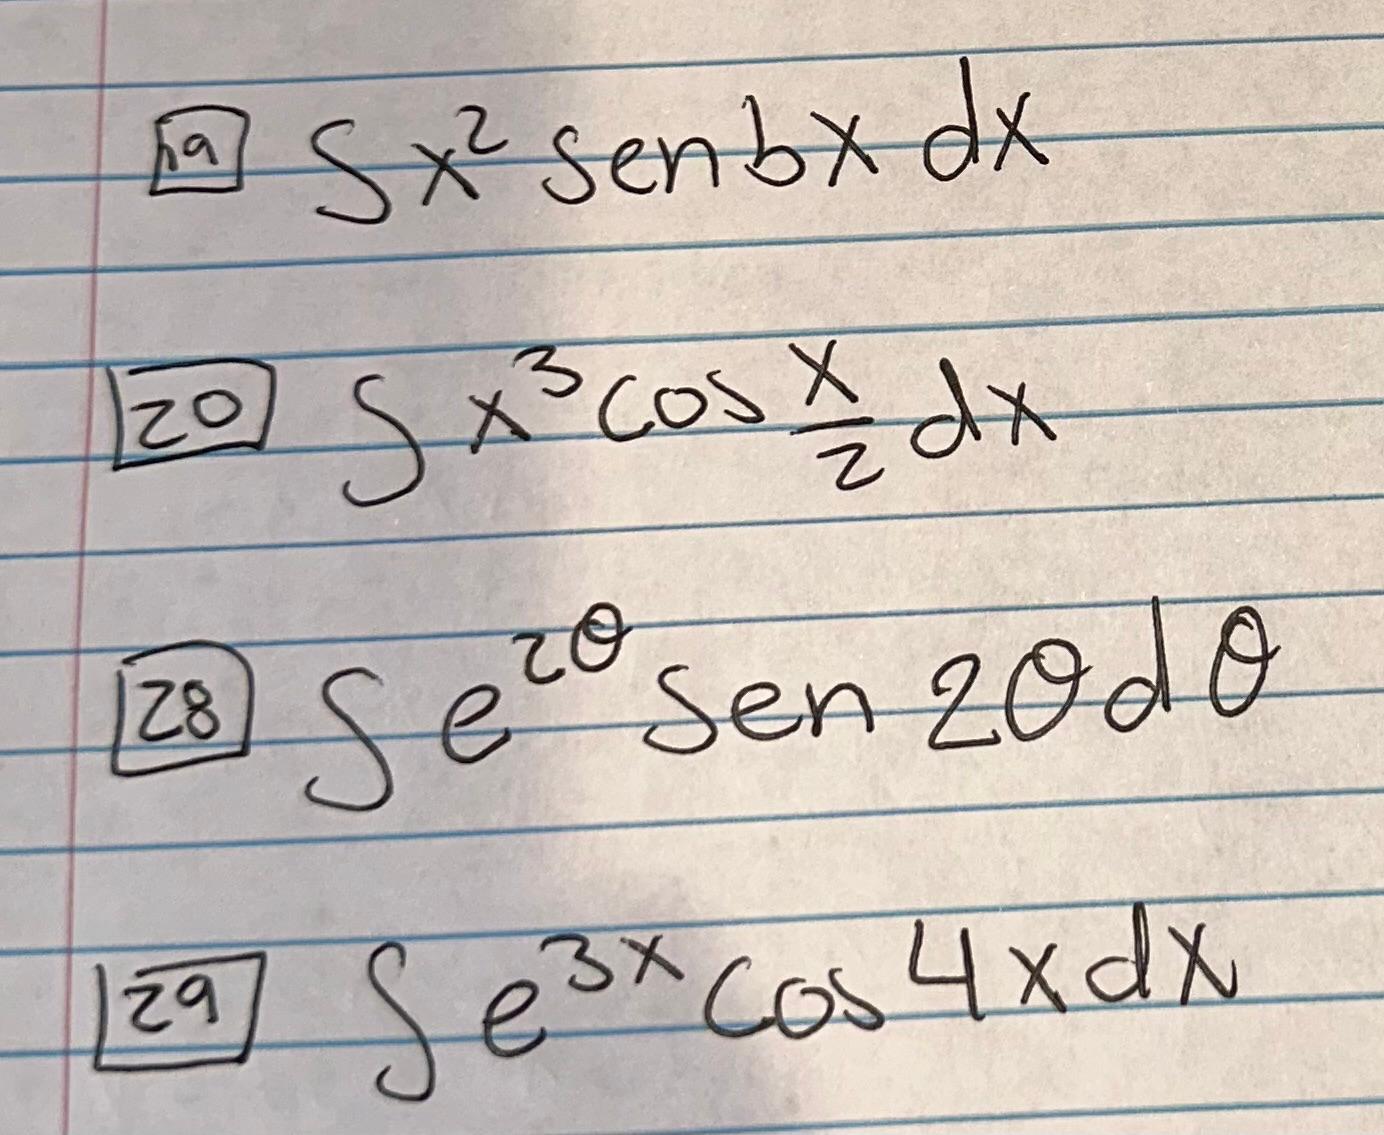 19 ∫ x² sen bx dx
20 ∫ x³ cos x/2 dx
28 ∫ e^2θ sen 2θ dθ
29 ∫ e^3x cos 4x dx